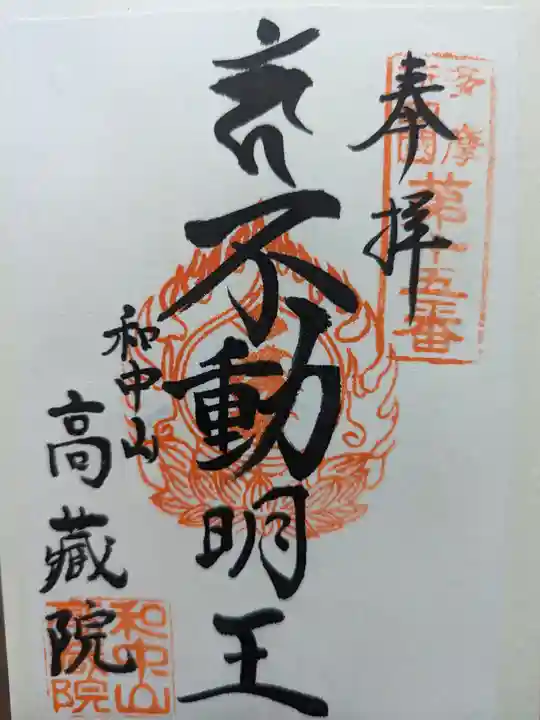 奉拝
多摩
四国
第十五番
不動明王
和中山
高蔵院
和中山
高蔵院